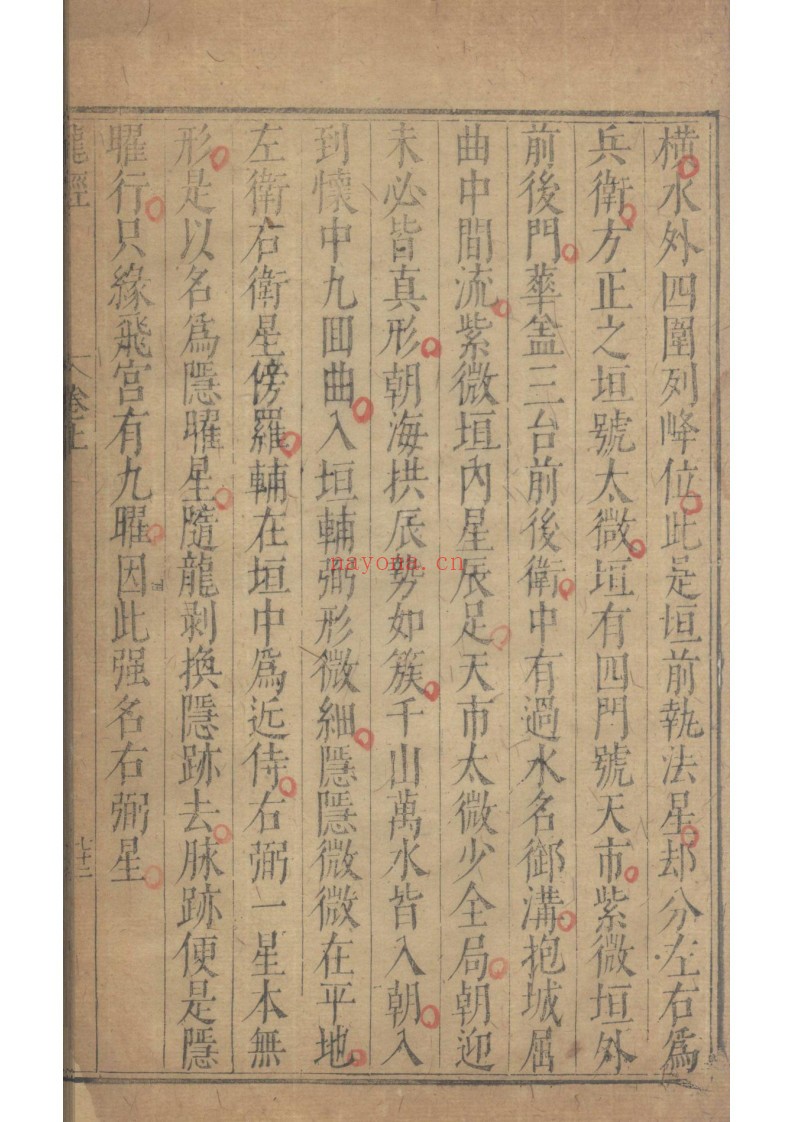 橫水外四圍列峰位此是垣前執法星却分左右爲
兵衛方正之垣號太微垣有四門號天市紫微垣外
前後門華盖三台前後衛中有過水名御溝抱城屈
曲中間流紫微垣內星辰足天市太微少全局朝迎
未必皆真形朝海拱辰勢如簇千山萬水皆入朝入
到懷中九囬曲入垣輔弼形微細隱隱微微在平地
左衛右衛星傍羅輔在垣中爲近侍右弼一星本無
形是以名爲隱曜星隨龍剥換隱跡去脉跡便是隱
曜行只緣飛宮有九曜因此强名右弼星
龍經
卷上
七十二
nayona.cn